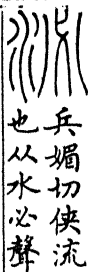 泌
兵媚切俠流
也从水必聲